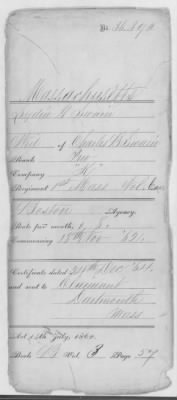 No. 36.494
Massachusetts
Lydia G. Swain
Wid of Charles B. Swain
Rank Priv
Company "K"
Regiment 1st Mass Vol. Cav
Boston Agency.
Rate per month, 8
Commencing 18th Nov '62.
Certificate dated 24th Dec '64.
and sent to Claimant
Dartmouth
Mass
Act 14th July, 1862.
Book Vol. 3 Page 57